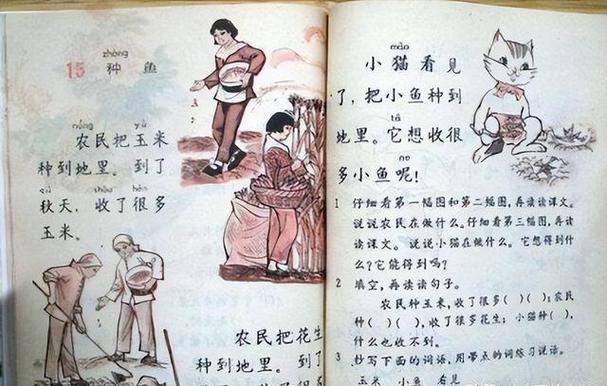 zhòng
15 种 鱼
nóng yù
农民把玉米
种到地里。到了
shōu hěn
秋天，收了很多
玉米。
农民把花生
种到地里。到了
māo
小猫看见
了，把小鱼种到
tā
地里。它想收很
ne
多小鱼呢！
1 仔细看第一幅图和第二幅图，再读读课文。
说说农民在做什么。仔细看第三幅图，再读
读课文。说说小猫在做什么。它想得到什
么？它能得到吗？
2 填空，再读读句子。
农民种玉米，收了很多( )( )；农民
种( )( )，收了很多花生；小猫种( )，
什么也收不到。
3 抄写下面的词语，用带点的词练习说话。
玉米 小鱼 看见